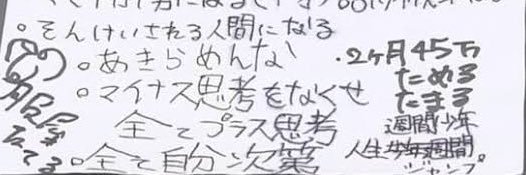 。そんけいされる人間になる
。あきらめんな
。マイナス思考をなくせ
全てプラス思考
。全て自分次第
・2ヶ月45万
ためる
たまる
週間少年
人生少年週間
ジャンプ。